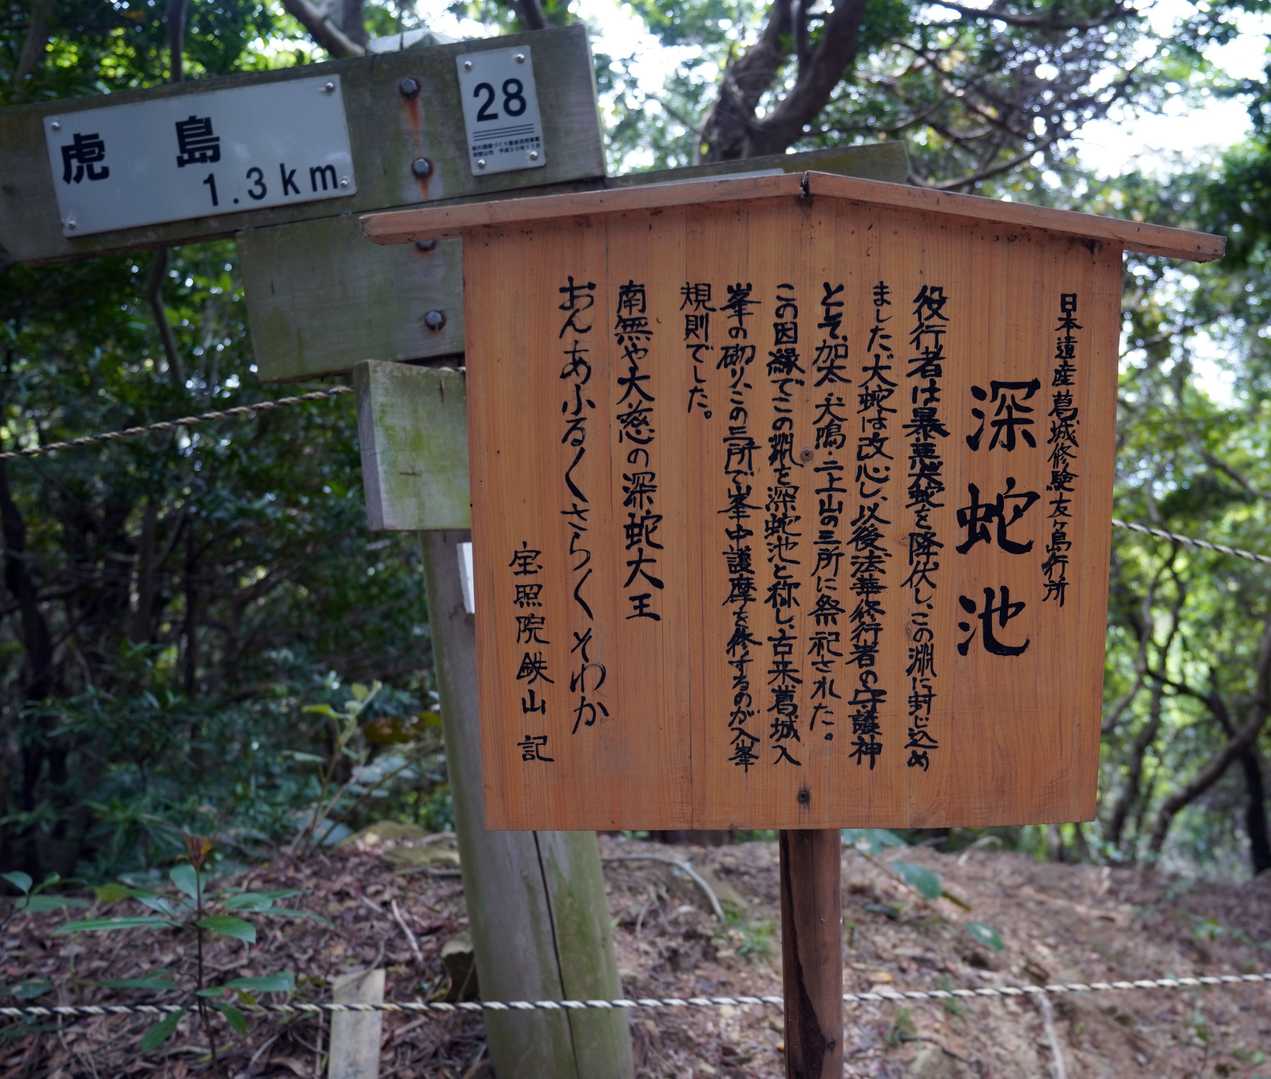 虎島
1.3km
28
日本遺産葛城修験友ヶ島行所
深蛇池
役行者は暴悪大蛇を降伏し、この淵に封じ込め
ました。大蛇は改心し、以後法華修行者の守護神
として、加太、犬鳴、二上山の三所に祭祀された。
この因縁でこの淵を深蛇池と称し、古来葛城入
峯の砌り、この三所で峯中護摩を修するのが入峯
規則でした。
南無や大慈の深蛇大王
おんあふるくさらくそわか
宝照院鉄山記